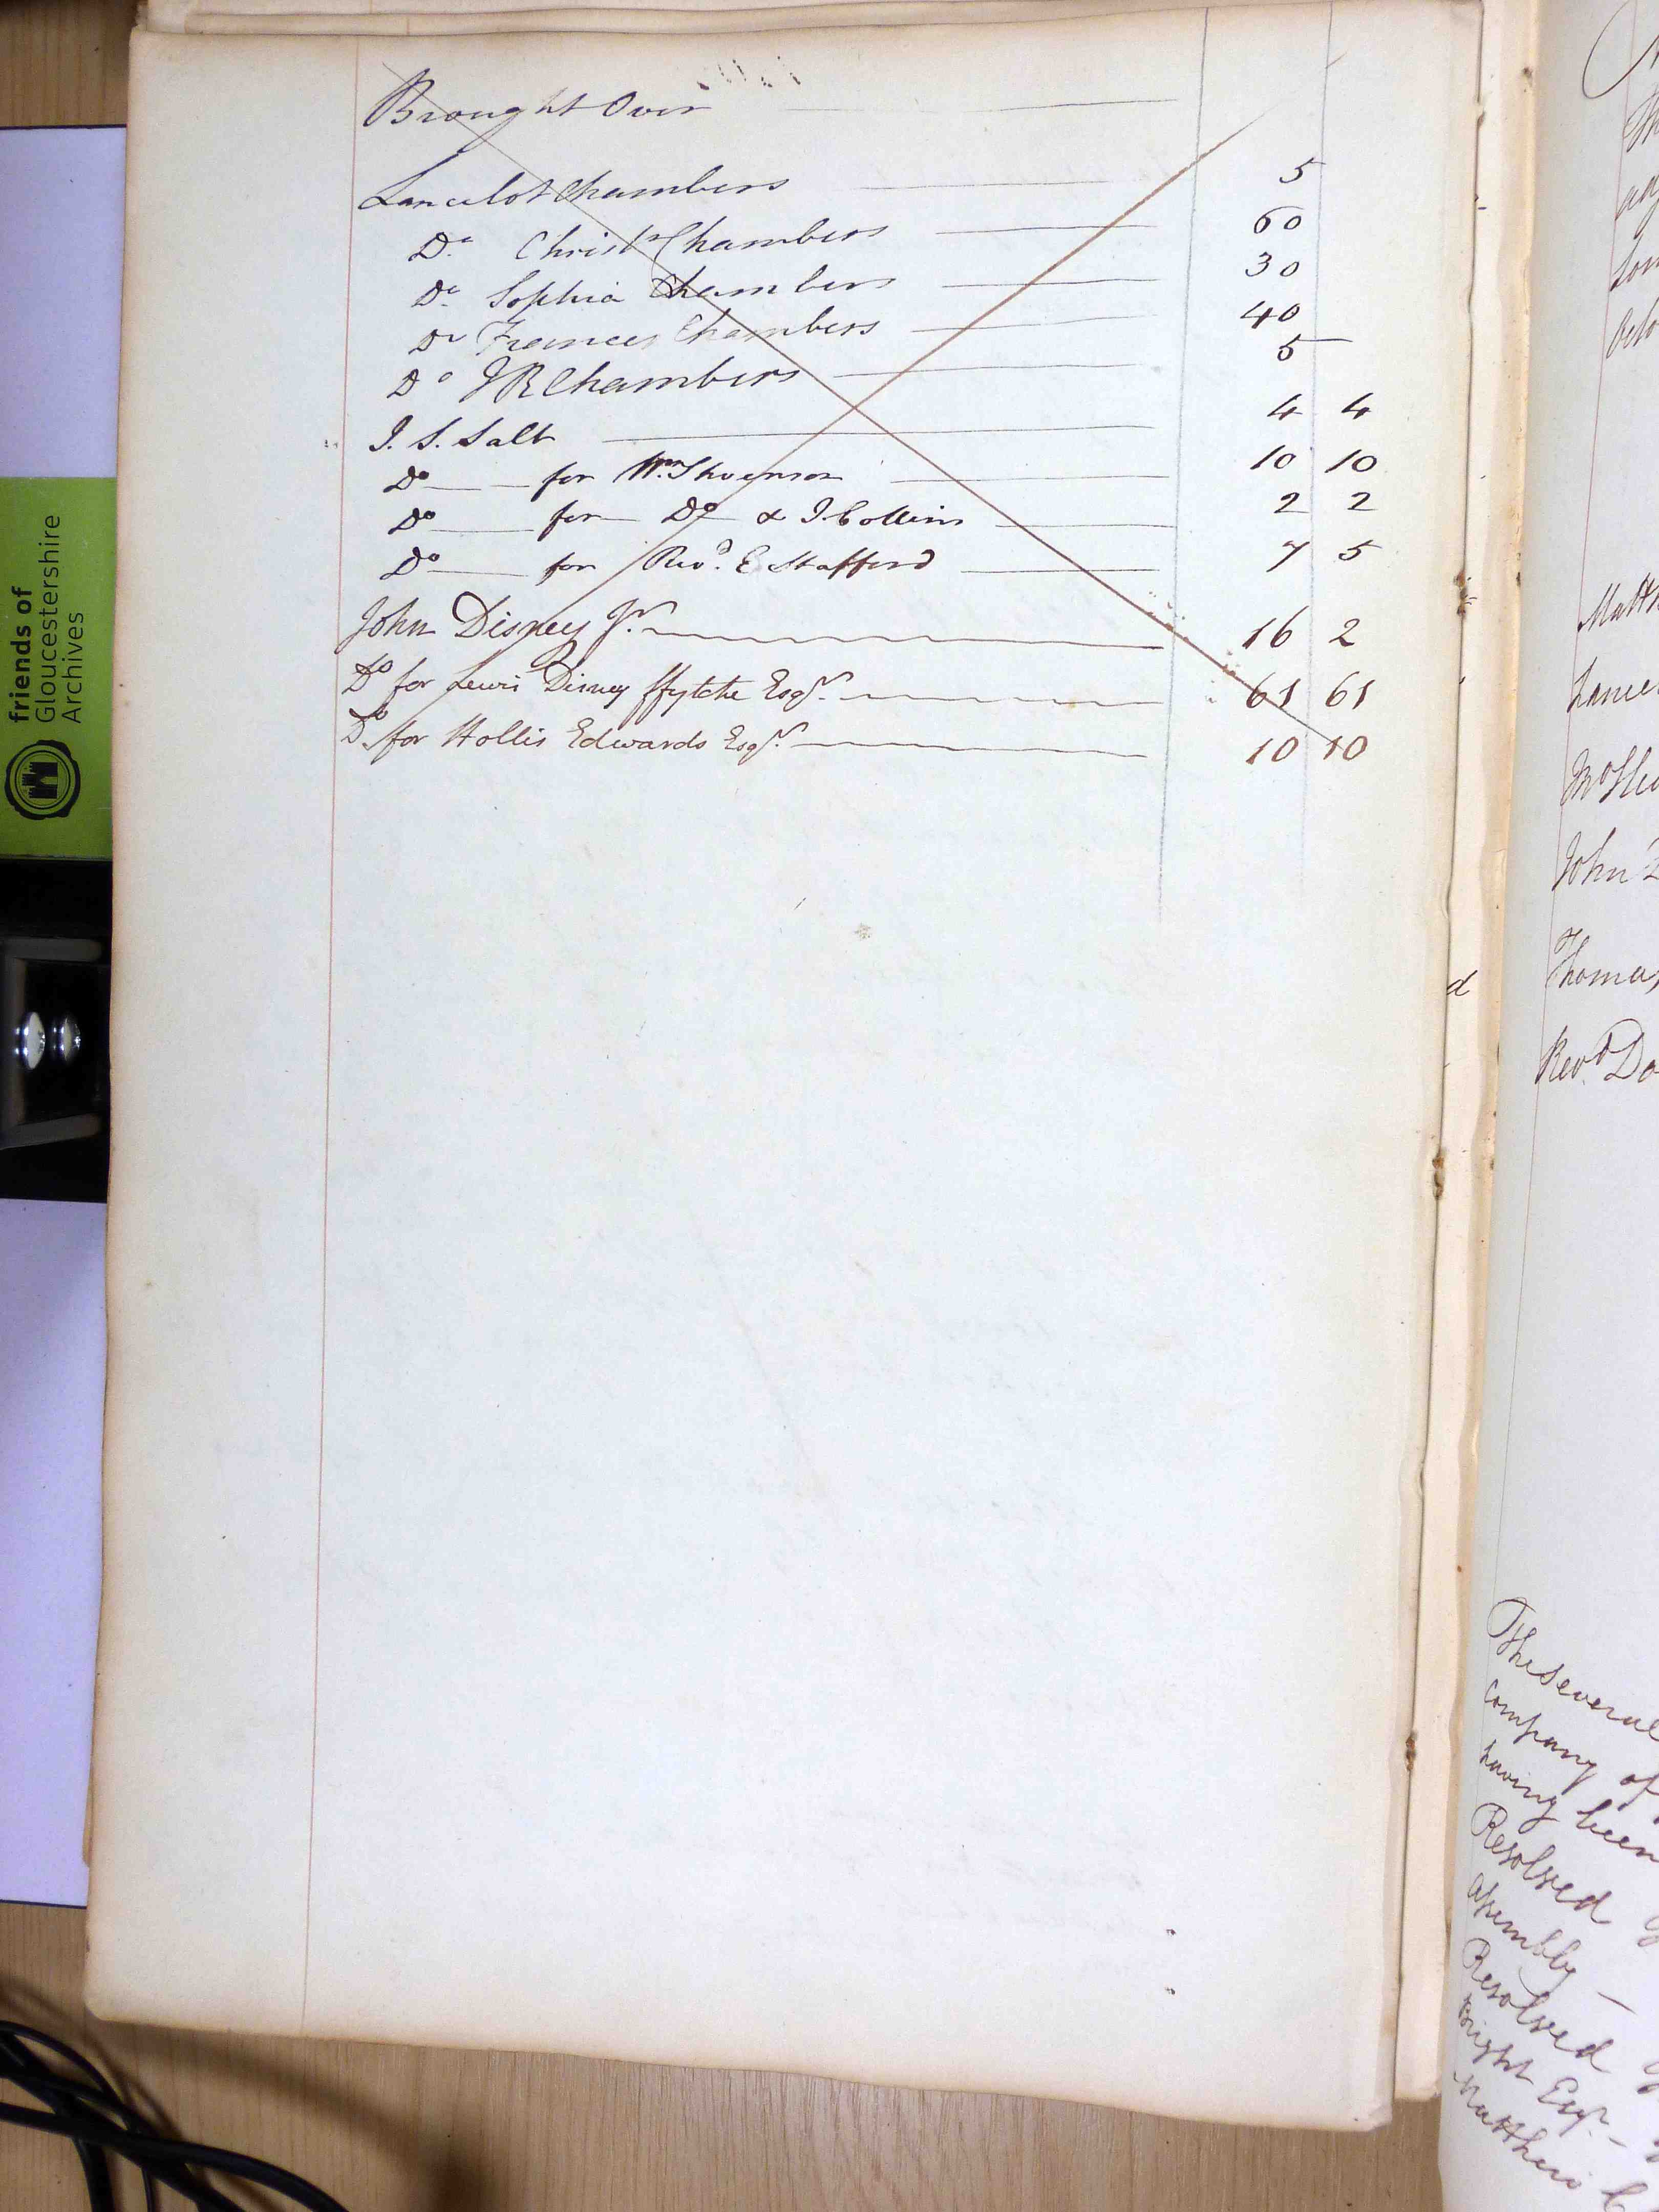 Brought Over
Lancelot Chambers 5
Do. Christr Chambers 60
Do. Sophia Chambers 30
Do Frances Chambers 40
Do J R Chambers 5
J. S. Salt 4 4
Do for Wm 10 10
Do for Do & J. Collins 2 2
Do for Revd. E Stafford 7 5
John Disney Jr. 16 2
Do for Lewis Disney ffytche Esqr. 61 61
Do. for Hollis Edwards Esqr. 10 10
friends of
Gloucestershire
Archives
d
John
Thomas
Revd. Do
The several
Company of
having been
Resolved
Assembly
Resolved
Wright Esqr.
Matthew